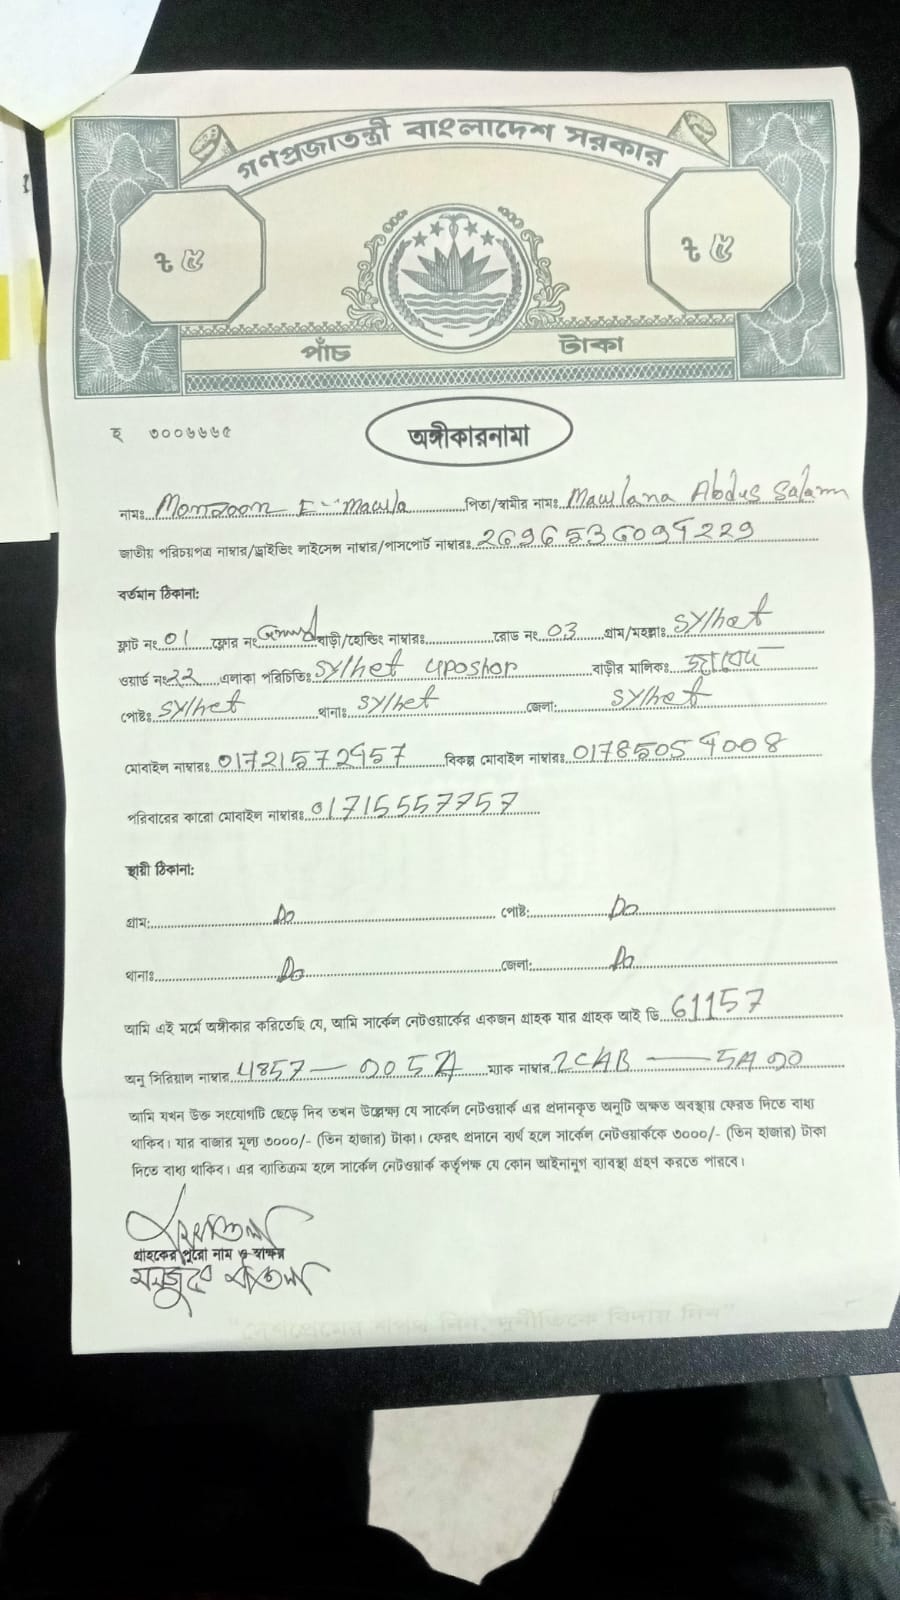 গণপ্রজাতন্ত্রী বাংলাদেশ সরকার
ট ৫ ট ৫
পাঁচ টাকা
হ ৩০০৬৬৬৫
অঙ্গীকারনামা
নামঃ Monzoon E- Maula পিতা/স্বামীর নামঃ Maulana Abdus Salam
জাতীয় পরিচয়পত্র নাম্বার/ড্রাইভিং লাইসেন্স নাম্বার/পাসপোর্ট নাম্বারঃ
বর্তমান ঠিকানা:
ফ্লাট নং 01 ফ্লোর নং Ground বাড়ী/হোল্ডিং নাম্বারঃ রোড নং 03 গ্রাম/মহল্লাঃ Sylhet
ওয়ার্ড নং 22 এলাকা পরিচিতিঃ Sylhet uposhor বাড়ীর মালিকঃ
পোষ্টঃ Sylhet থানাঃ Sylhet জেলা: Sylhet
মোবাইল নাম্বারঃ বিকল্প মোবাইল নাম্বারঃ
পরিবারের কারো মোবাইল নাম্বারঃ 01715557757
স্থায়ী ঠিকানা:
গ্রাম: Do পোষ্ট: Do
থানাঃ Do জেলা: Do
আমি এই মর্মে অঙ্গীকার করিতেছি যে, আমি সার্কেল নেটওয়ার্কের একজন গ্রাহক যার গ্রাহক আই ডি 61157
অনু সিরিয়াল নাম্বার ম্যাক নাম্বার
আমি যখন উক্ত সংযোগটি ছেড়ে দিব তখন উল্লেক্ষ্য যে সার্কেল নেটওয়ার্ক এর প্রদানকৃত অনুটি অক্ষত অবস্থায় ফেরত দিতে বাধ্য
থাকিব। যার বাজার মূল্য ৩০০০/- (তিন হাজার) টাকা। ফেরৎ প্রদানে ব্যর্থ হলে সার্কেল নেটওয়ার্ককে ৩০০০/- (তিন হাজার) টাকা
দিতে বাধ্য থাকিব। এর ব্যতিক্রম হলে সার্কেল নেটওয়ার্ক কর্তৃপক্ষ যে কোন আইনানুগ ব্যাবস্থা গ্রহণ করতে পারবে।
গ্রাহকের পুরো নাম ও স্বাক্ষর
"দেশপ্রেমের শপথ নিন, দুর্নীতিকে বিদায় দিন"